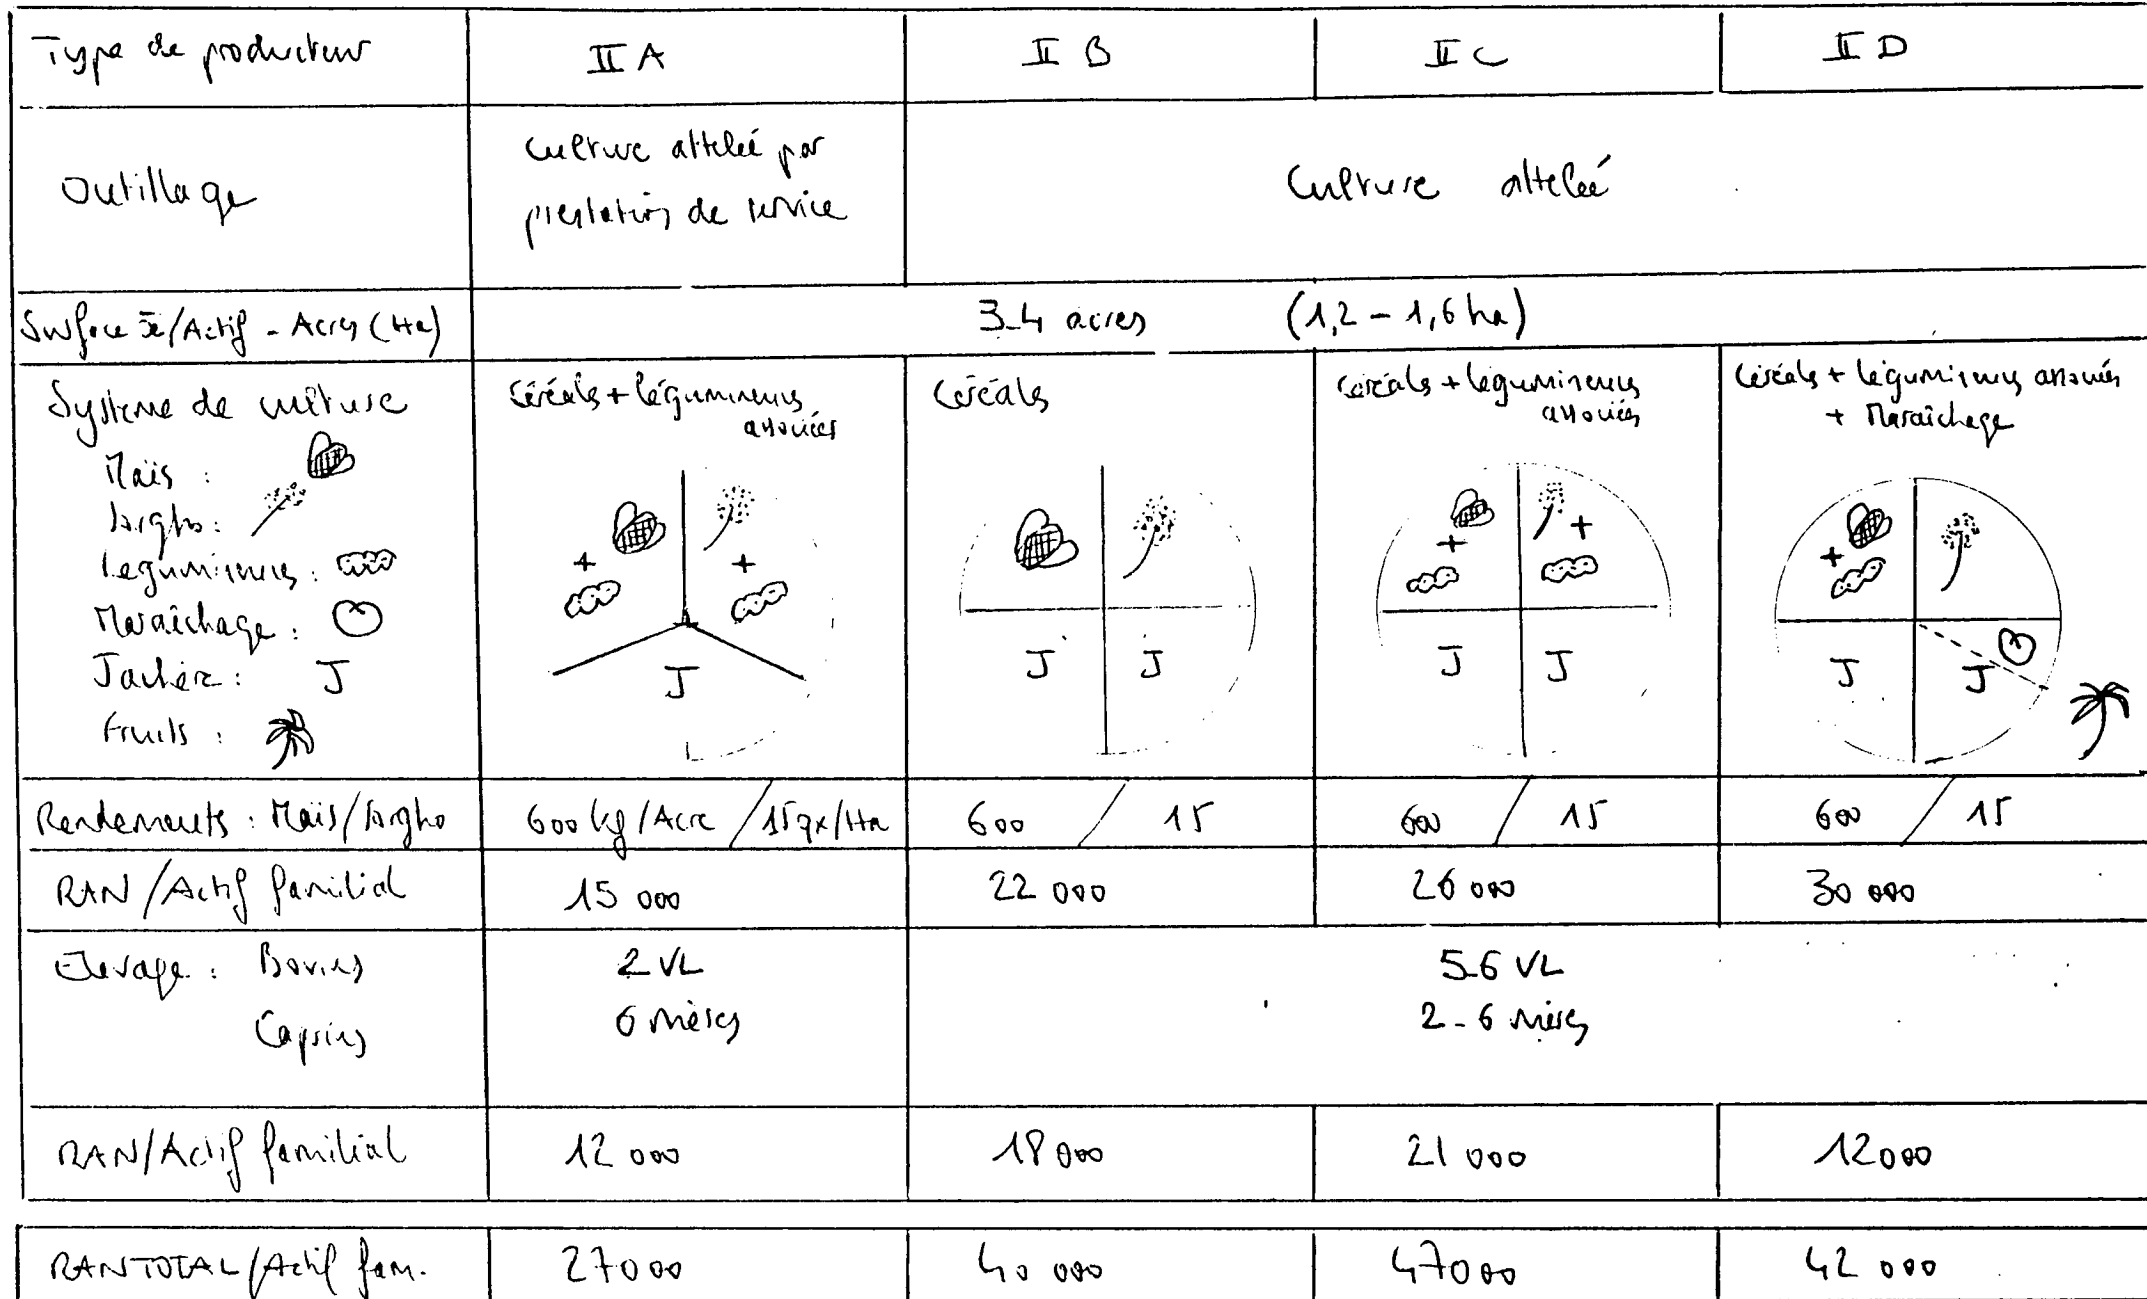 Type de producteur
II A
II B
II C
II D
Outillage
Culture attelée par
prestation de service
Culture attelée
Surface /Actif - Acres (Ha)
3-4 acres (1,2 - 1,6 ha)
Système de culture
Maïs :
Sorgho :
Légumineuses :
Maraîchage :
Jachère : J
Fruits :
Céréales + légumineuses
associées
J
Céréales
J J
Céréales + légumineuses
associées
J J
Céréales + légumineuses associées
+ Maraîchage
J J
Rendements : Maïs/Sorgho
600 kg/Acre / 15 qx/Ha
600 / 15
600 / 15
600 / 15
RAN/Actif familial
15 000
22 000
26 000
30 000
Elevage : Bovins
Caprins
2 VL
6 mères
5-6 VL
2-6 mères
RAN/Actif familial
12 000
18 000
21 000
12 000
RAN TOTAL/Actif fam.
27 000
40 000
47 000
42 000